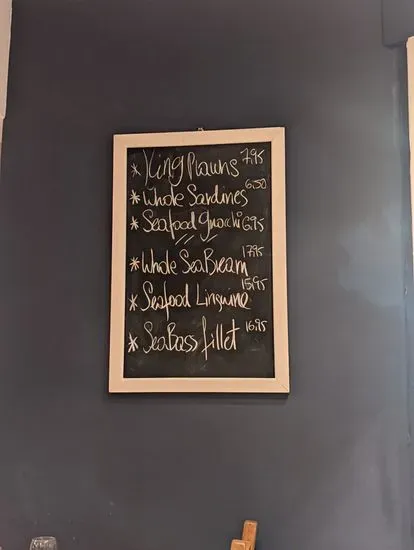 * King Prawns 7.95
* Whole Sardines 6.50
* Seafood gnocchi 6.95
* Whole SeaBream 17.95
* Seafood Linguine 15.95
* SeaBass fillet 16.95